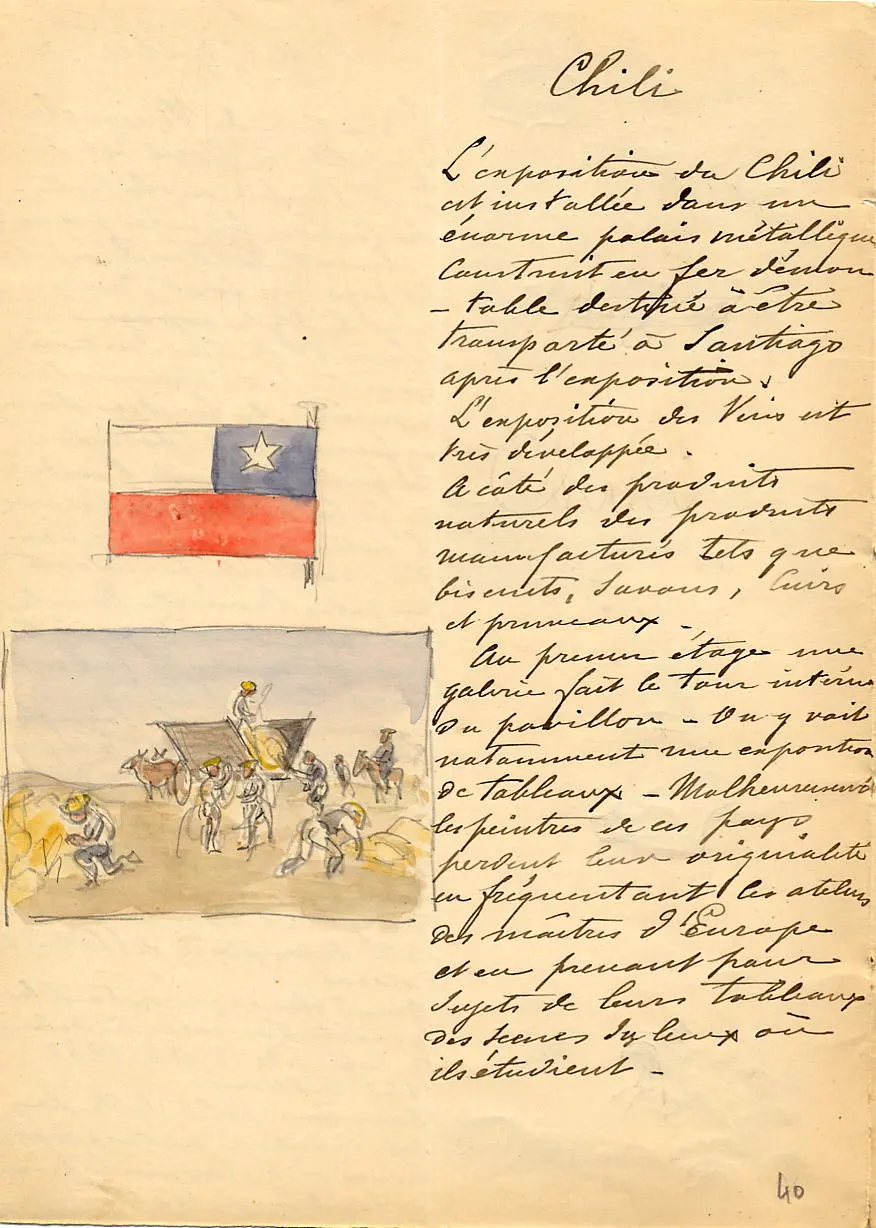 Chili
L'exposition du Chili
est installée dans un
énorme palais métallique
construit en fer démon
- table destiné à être
transporté à Santiago
après l'exposition.
L'exposition des Vins est
très développée.
A côté des produits
naturels des produits
manufacturés tels que
biscuits, savons, cuirs
et pruneaux -
Au premier étage une
galerie fait le tour interne
du pavillon - On y voit
notamment une exposition
de tableaux - Malheureusemt
les peintres de ces pays
perdent leur originalité
en fréquentant les ateliers
des maîtres d'Europe
et en prenant pour
sujets de leurs tableaux
des scenes du lieux où
ils étudient -
40